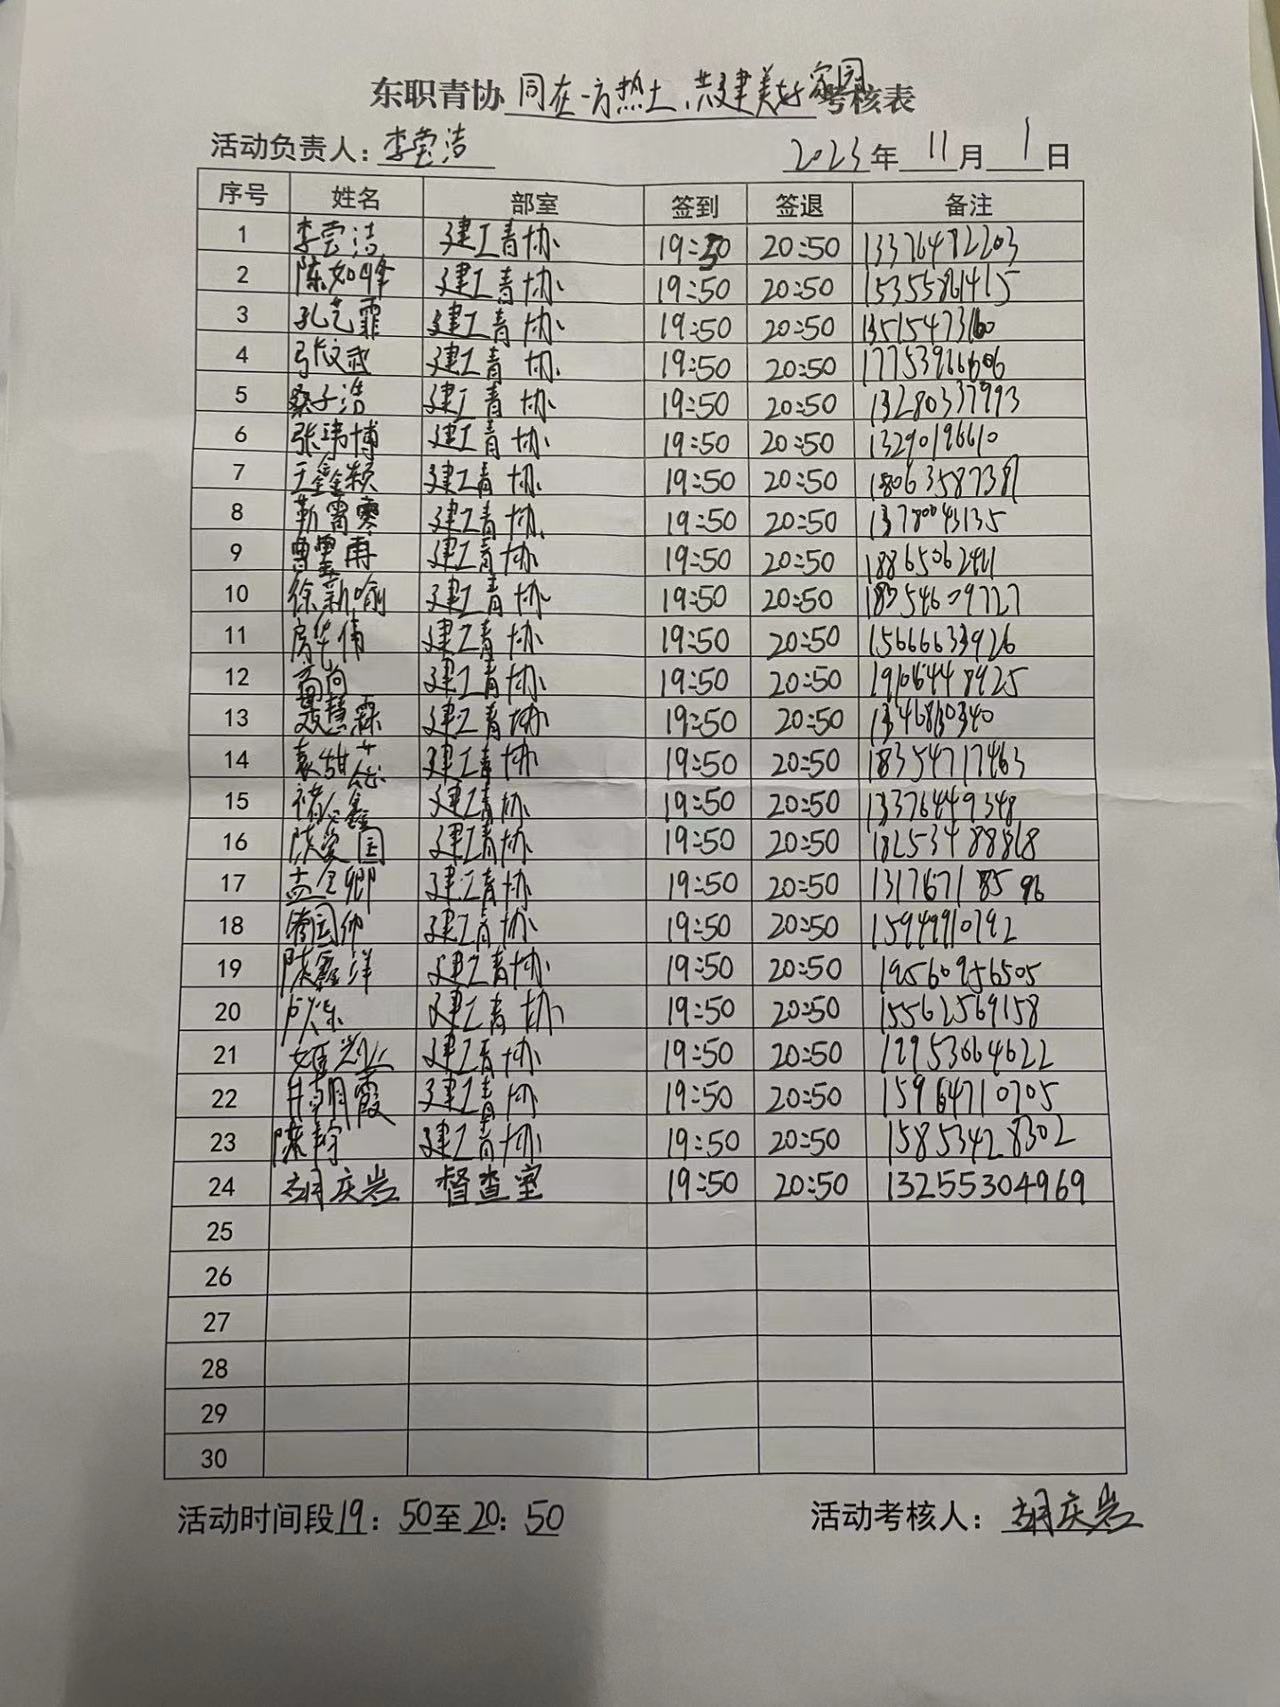 东职青协同在一方热土、共建美好家园考核表
活动负责人：李莹洁 2023年11月1日
序号 姓名 部室 签到 签退 备注
1 李莹洁 建工青协 19:50 20:50 13376482203
2 陈如峰 建工青协 19:50 20:50 15355861415
3 孔艺霏 建工青协 19:50 20:50 13515473160
4 张文武 建工青协 19:50 20:50 17753966606
5 桑子浩 建工青协 19:50 20:50 13280337993
6 张玮博 建工青协 19:50 20:50 13290196610
7 王鑫颖 建工青协 19:50 20:50 18063587381
8 靳霄雯 建工青协 19:50 20:50 13780043135
9 建工青协 19:50 20:50
10 徐新喻 建工青协 19:50 20:50 18354609727
11 房华伟 建工青协 19:50 20:50 15666633926
12 高向 建工青协 19:50 20:50 19106448925
13 聂慧霖 建工青协 19:50 20:50
14 袁甜蕊 建工青协 19:50 20:50 18354717463
15 褚鑫 建工青协 19:50 20:50 13376449348
16 陈爱国 建工青协 19:50 20:50 18253488868
17 孟全卿 建工青协 19:50 20:50 13176718596
18 国帅 建工青协 19:50 20:50 15949910792
19 陈鑫洋 建工青协 19:50 20:50 19560956505
20 卢烁 建工青协 19:50 20:50 15562569158
21 建工青协 19:50 20:50 19953664622
22 井明霞 建工青协 19:50 20:50 15964710705
23 建工青协 19:50 20:50 15853428302
24 胡庆岩 督查室 19:50 20:50 13255304969
25
26
27
28
29
30
活动时间段19：50至20：50 活动考核人：胡庆岩